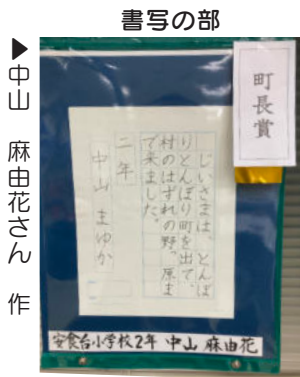 書写の部
▶中山 麻由花さん 作
町長賞
じいさまは、とんぼ
りとんぼり町を出て、
村のはずれの野っ原ま
で来ました。
二年
中山 まゆか
安食台小学校2年 中山 麻由花